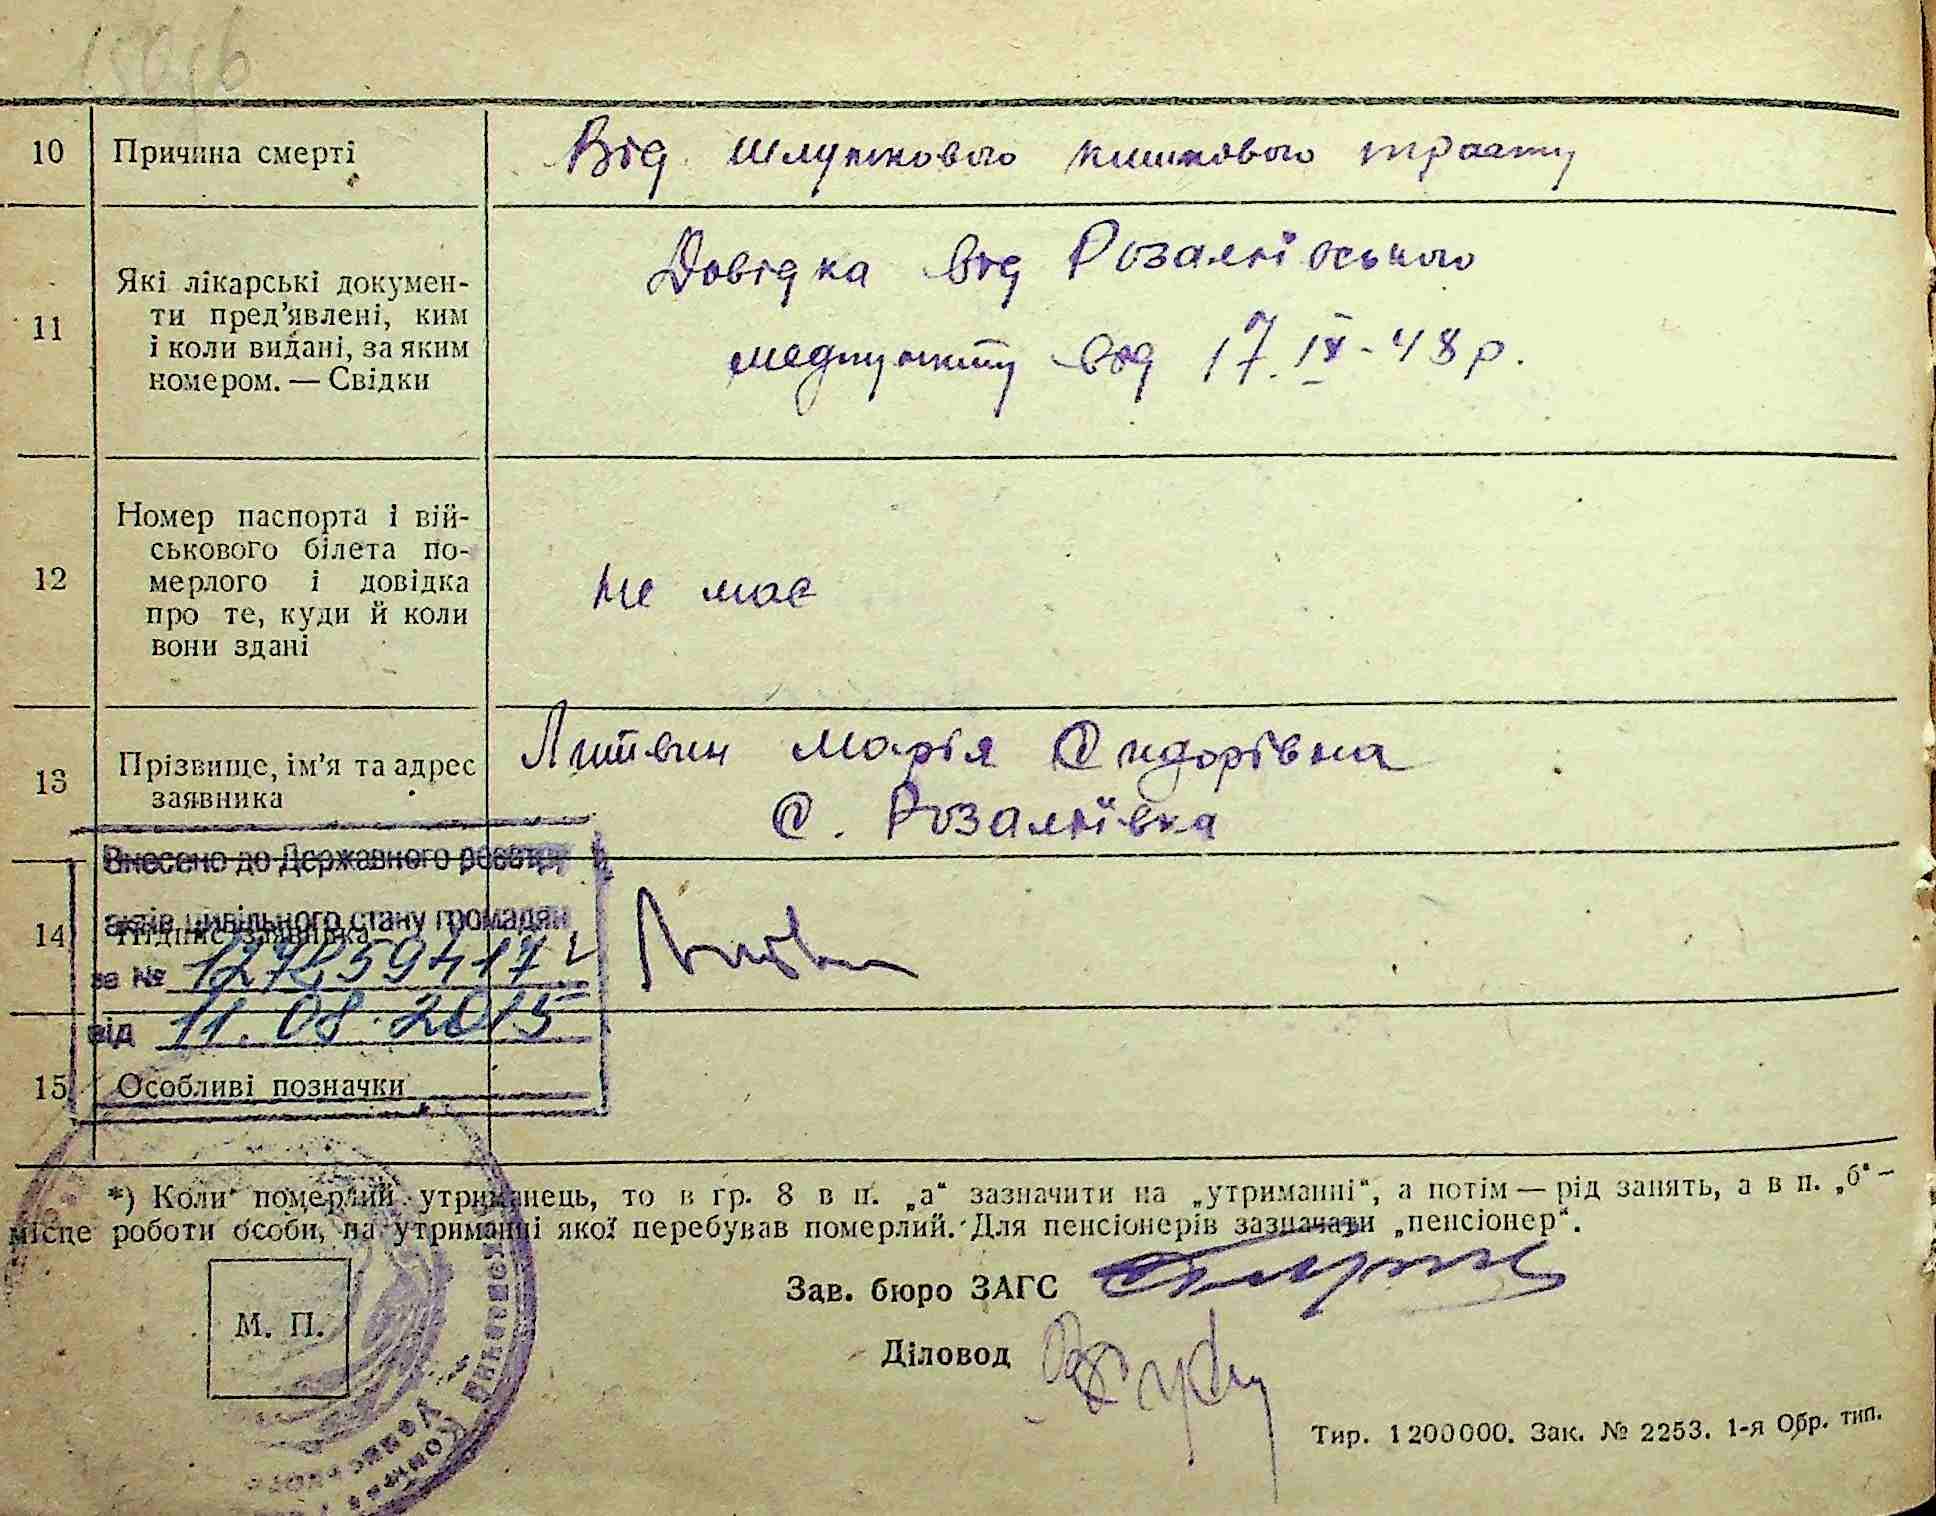 10 Причина смерті Від шлункового кишкового тракту
11 Які лікарські докумен-
ти пред’явлені, ким
і коли видані, за яким
номером. — Свідки
Довідка від Розаліївського
медпункту від 17.IX-48 р.
12 Номер паспорта і вій-
ськового білета по-
мерлого і довідка
про те, куди й коли
вони здані
не має
13 Прізвище, ім’я та адрес
заявника
Литвин Марія Сидорівна
С. Розаліївка
Внесено до Державного реєстру
актів цивільного стану громадян
14 Підпис заявника
за №
від 11.08.2015
15 Особливі позначки
*) Коли померлий утриманець, то в гр. 8 в п. „а“ зазначити на „утриманні“, а потім — рід занять, а в п. „б“ —
місце роботи особи, на утриманні якої перебував померлий. Для пенсіонерів зазначати „пенсіонер“.
Зав. бюро ЗАГС
М. П.
Діловод
Тир. 1200000. Зак. № 2253. 1-я Обр. тип.